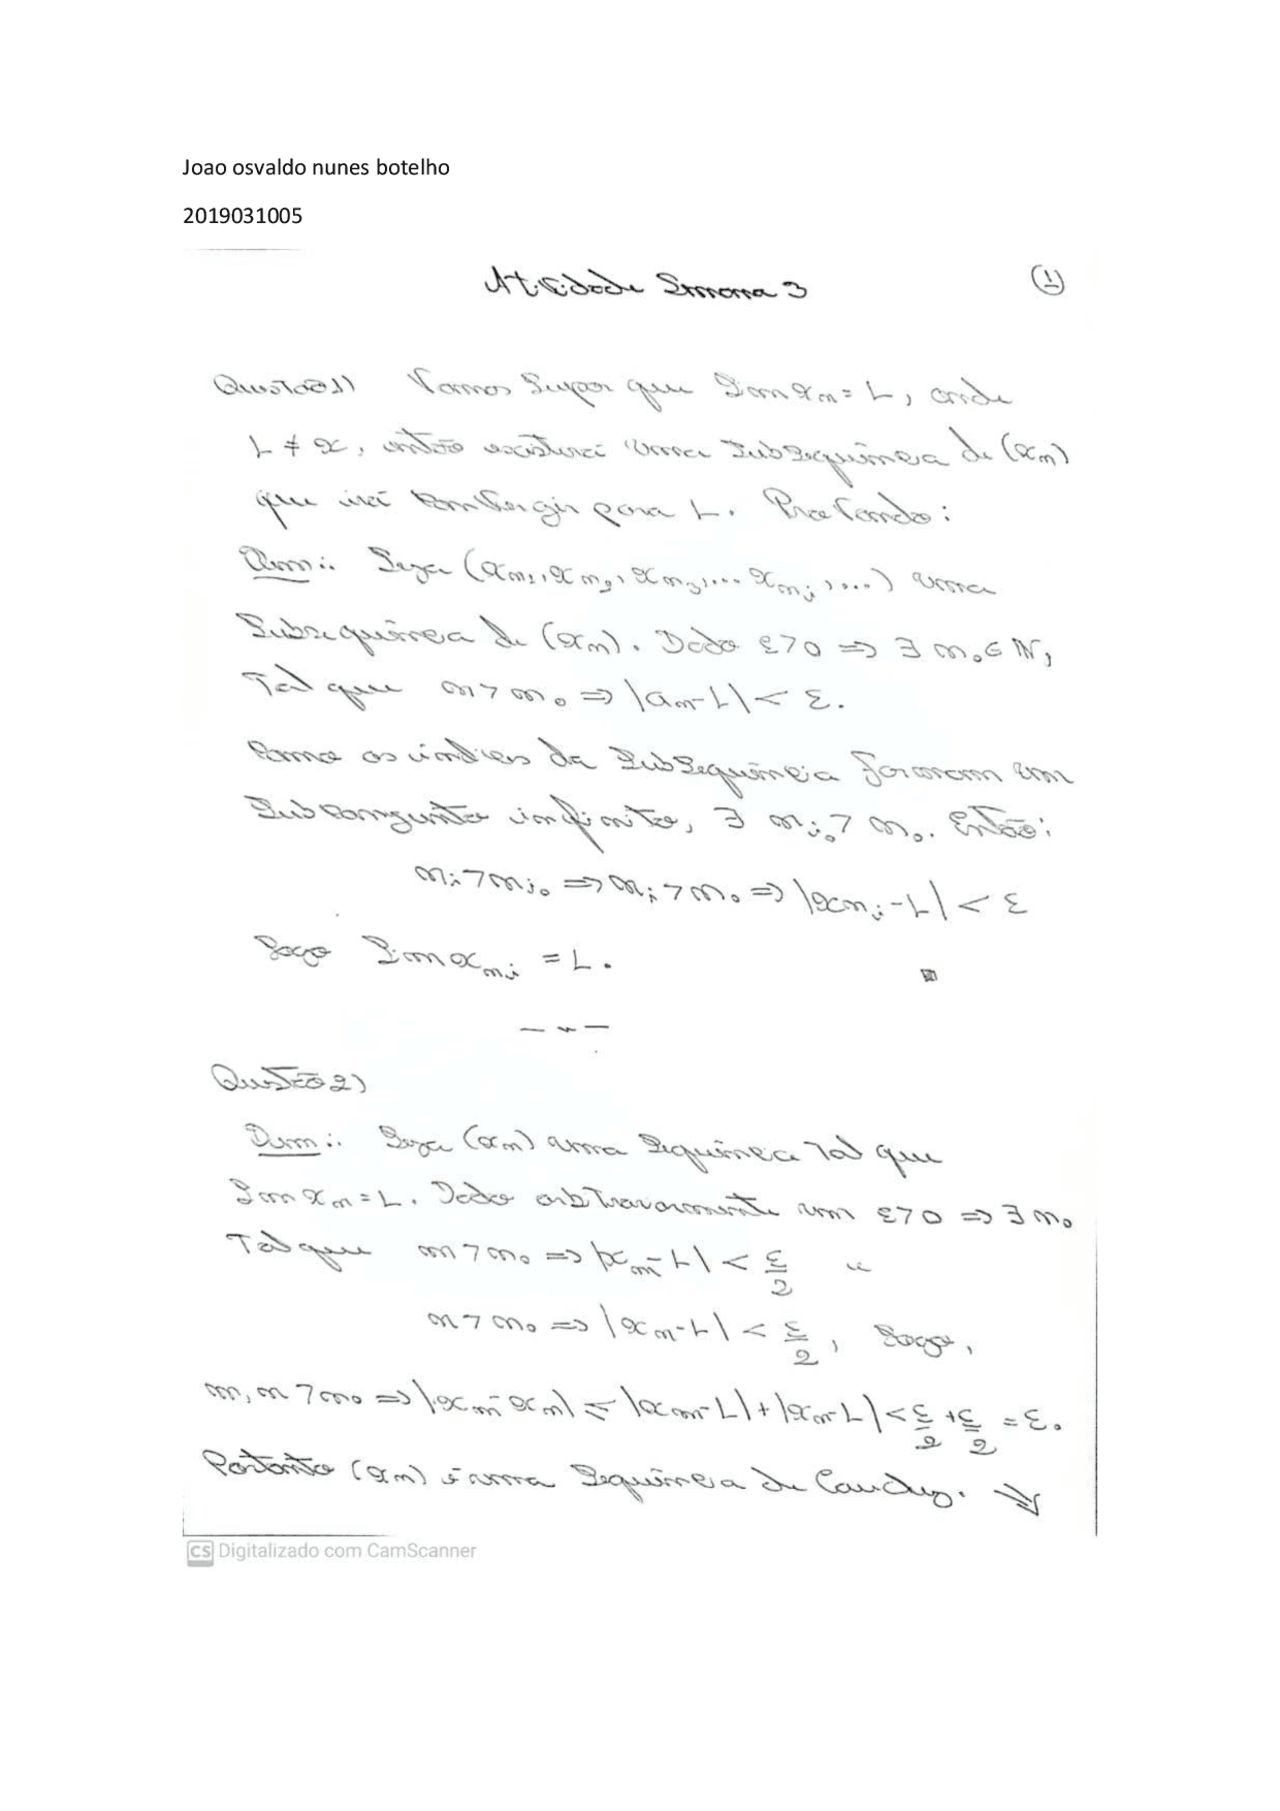 Joao osvaldo nunes botelho
2019031005
Atividade Semana 3
1
Questão 1) Vamos Supor que Lim xn = L, onde
L ≠ x, então existirá uma Subsequência de (xn)
que irá convergir para L. Provando:
Dem.: Seja (xn1, xn2, xn3, ... xni, ...) uma
Subsequência de (xn). Dado ε > 0 => ∃ n0 ∈ N,
Tal que n > n0 => |an - L| < ε.
Como os índices da Subsequência formam um
Subconjunto infinito, ∃ ni0 > n0. Então:
ni > ni0 => ni > n0 => |xni - L| < ε
Logo Lim xni = L.
Questão 2)
Dem.: Seja (xn) uma Sequência Tal que
Lim xn = L. Dado arbitrariamente um ε > 0 => ∃ n0
Tal que m > n0 => |xm - L| < ε/2 e
n > n0 => |xn - L| < ε/2, Logo,
m, n > n0 => |xm - xn| ≤ |xm - L| + |xn - L| < ε/2 + ε/2 = ε.
Portanto (xn) é uma Sequência de Cauchy.
CS Digitalizado com CamScanner